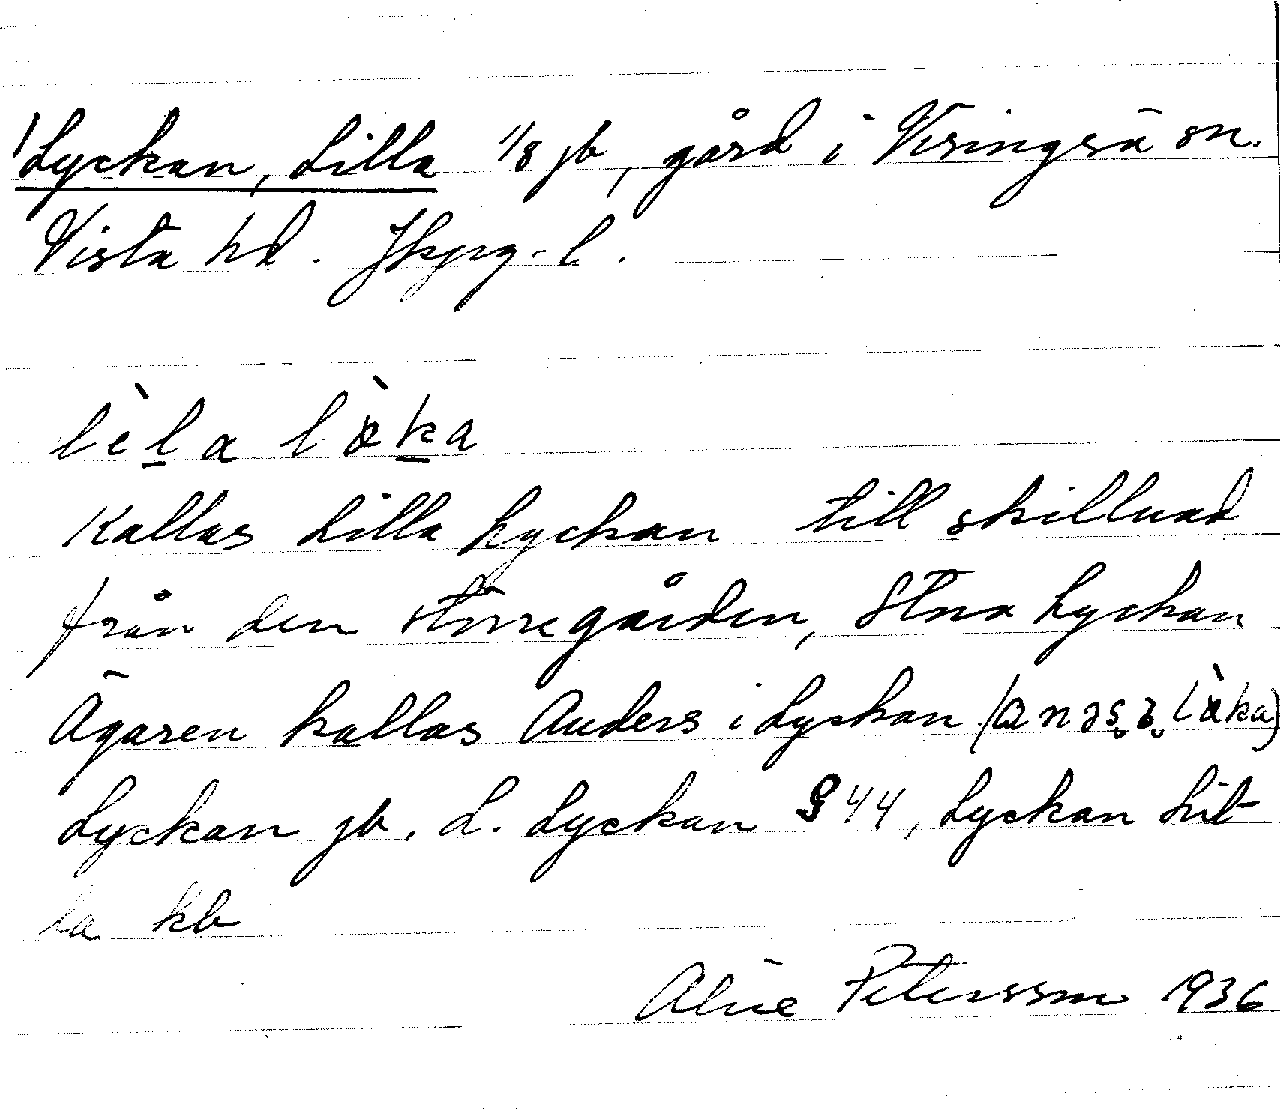 Lyckan, Lilla 1/8 jb, gård i Visingsö sn.
Vista hd. Jkpg. l.
lèla lö̀ka
Kallas Lilla Lyckan till skillnad
från den större gården, Stora Lyckan
Ägaren kallas Anders i Lyckan (
Lyckan jb. L. Lyckan S 44, Lyckan Lil-
la kb
Alice Petersson 1936